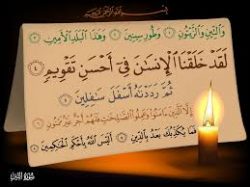 وَالتِّينِ وَالزَّيْتُونِ ۝١ وَطُورِ سِينِينَ ۝٢ وَهَٰذَا الْبَلَدِ الْأَمِينِ ۝٣
لَقَدْ خَلَقْنَا الْإِنسَٰنَ فِىٓ أَحْسَنِ تَقْوِيمٍ ۝٤
ثُمَّ رَدَدْنَٰهُ أَسْفَلَ سَٰفِلِينَ ۝٥
إِلَّا الَّذِينَ ءَامَنُوا وَعَمِلُوا الصَّٰلِحَٰتِ فَلَهُمْ أَجْرٌ غَيْرُ مَمْنُونٍ ۝٦
فَمَا يُكَذِّبُكَ بَعْدُ بِالدِّينِ ۝٧ أَلَيْسَ اللَّهُ بِأَحْكَمِ الْحَٰكِمِينَ ۝٨